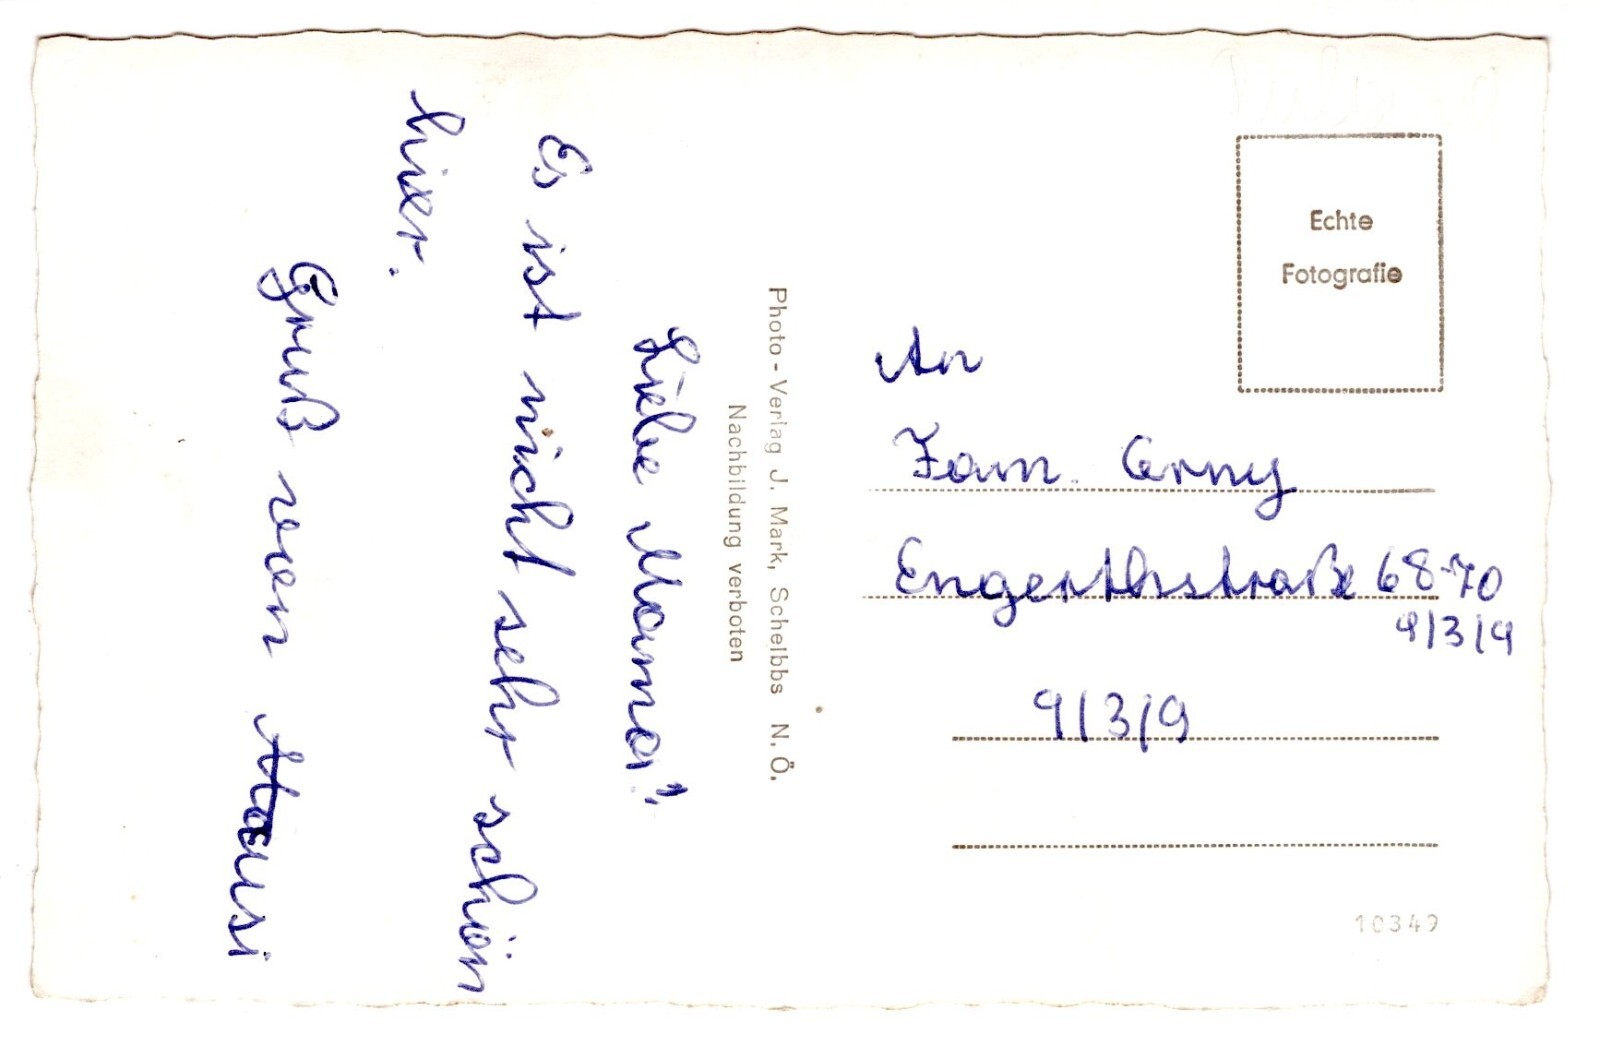 Liebe Mama!
Es ist nicht sehr schön
hier.
Gruß von Hausi
Photo - Verlag J. Mark, Scheibbs N. Ö.
Nachbildung verboten
Echte
Fotografie
An
Fam. Cerny
Engerthstraße 68-70
9/3/9
9/3/9
10349